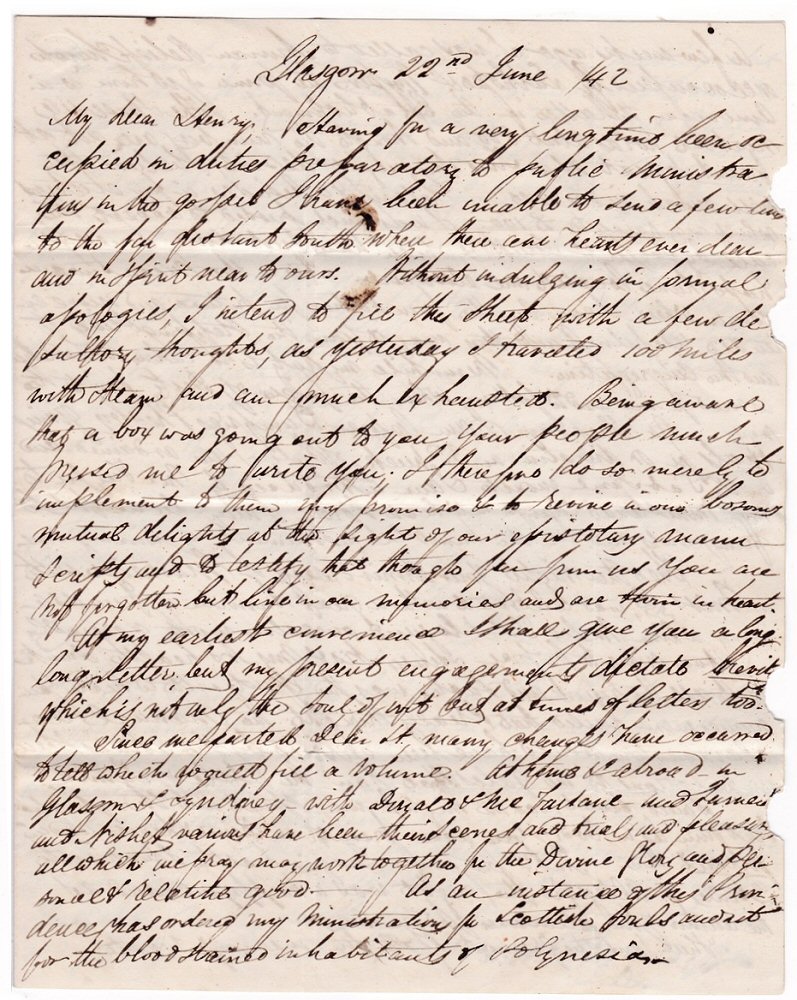 Glasgow 22nd June /42
My dear Henry, Having for a very long time been oc
cupied in duties preparatory to public Ministra
tions in the gospel I have been unable to send a few lines
to the far distant South when there are hearts ever dear
and in spirit near to ours. Without indulging in formal
apologies, I intend to fill this sheet with a few de
sultory thoughts, as yesterday I traveled 100 miles
with steam and am much exhausted. Being aware
that a box was going out to you, your people much
pressed me to write you. I therefore do so merely to
implement to them my promise & to revive in our bosoms
mutual delights at the sight of our epistolary manu
scripts and to testify that though far from us you are
not forgotten but live in our memories and are in heart.
At my earliest convenience I shall give you a long
long letter but my present engagements dictate brevity
which is not only the soul of wit but at times of letters too.
Since we parted Dear H, many changes have occurred
to tell which would fill a volume. At home & abroad in
Glasgow & Sydney with Donald & Mc Farlane and Turner
and Nisbet various have been their scenes and trials and pleasures
all which we pray may work together for the Divine glory and per
sonal & relative good. As an instance of this Provi
dence has ordered my Ministrations for Scottish souls and not
for the bloodstained inhabitants of Polynesia